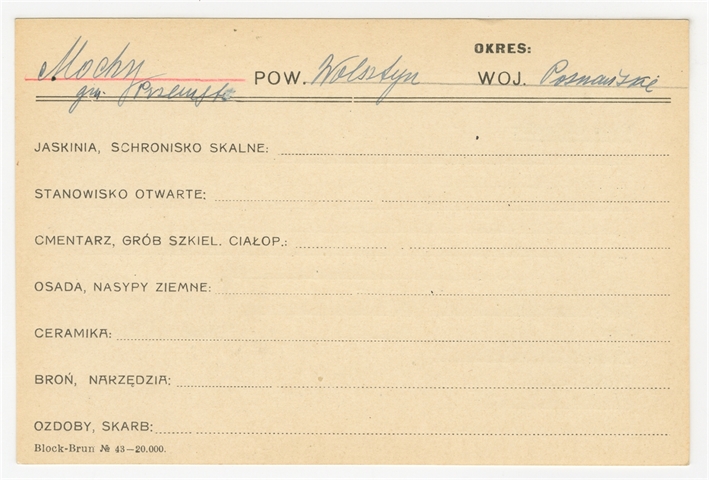 OKRES:
Mochy POW. Wolsztyn WOJ. Poznańskie
gm. Przemęt
JASKINIA, SCHRONISKO SKALNE:
STANOWISKO OTWARTE:
CMENTARZ, GRÓB SZKIEL. CIAŁOP.:
OSADA, NASYPY ZIEMNE:
CERAMIKA:
BROŃ, NARZĘDZIA:
OZDOBY, SKARB:
Block-Brun № 43—20.000.